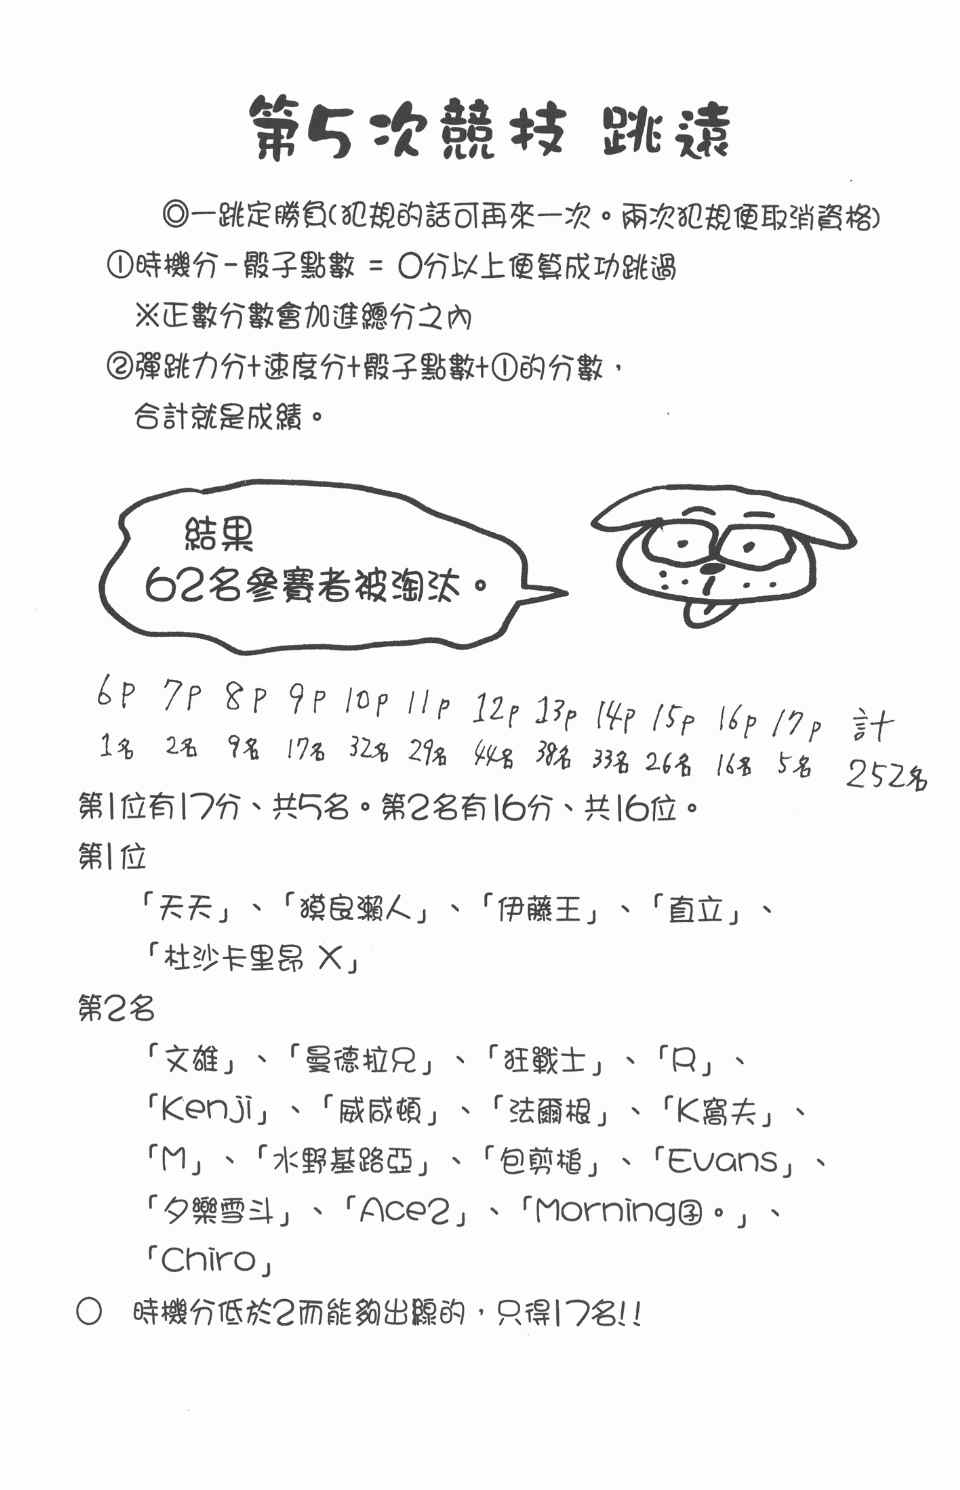 第5次競技 跳遠
◎一跳定勝負(犯規的話可再來一次。兩次犯規便取消資格)
①時機分-骰子點數 = 〇分以上便算成功跳過
※正數分數會加進總分之內
②彈跳力分+速度分+骰子點數+①的分數,
合計就是成績。
結果
62名參賽者被淘汰。
6P 7P 8P 9P 10P 11P 12P 13P 14P 15P 16P 17P 計
1名 2名 9名 17名 32名 29名 44名 38名 33名 26名 16名 5名 252名
第1位有17分、共5名。第2名有16分、共16位。
第1位
「天天」、「獏良瀨人」、「伊藤王」、「直立」、
「杜沙卡里昂 X」
第2名
「文雄」、「曼德拉兄」、「狂戰士」、「R」、
「Kenji」、「威咸頓」、「法爾根」、「K窩夫」、
「M」、「水野基路亞」、「包剪槌」、「Evans」、
「夕樂雪斗」、「Ace2」、「Morning囝。」、
「Chiro」
〇 時機分低於2而能夠出線的,只得17名!!